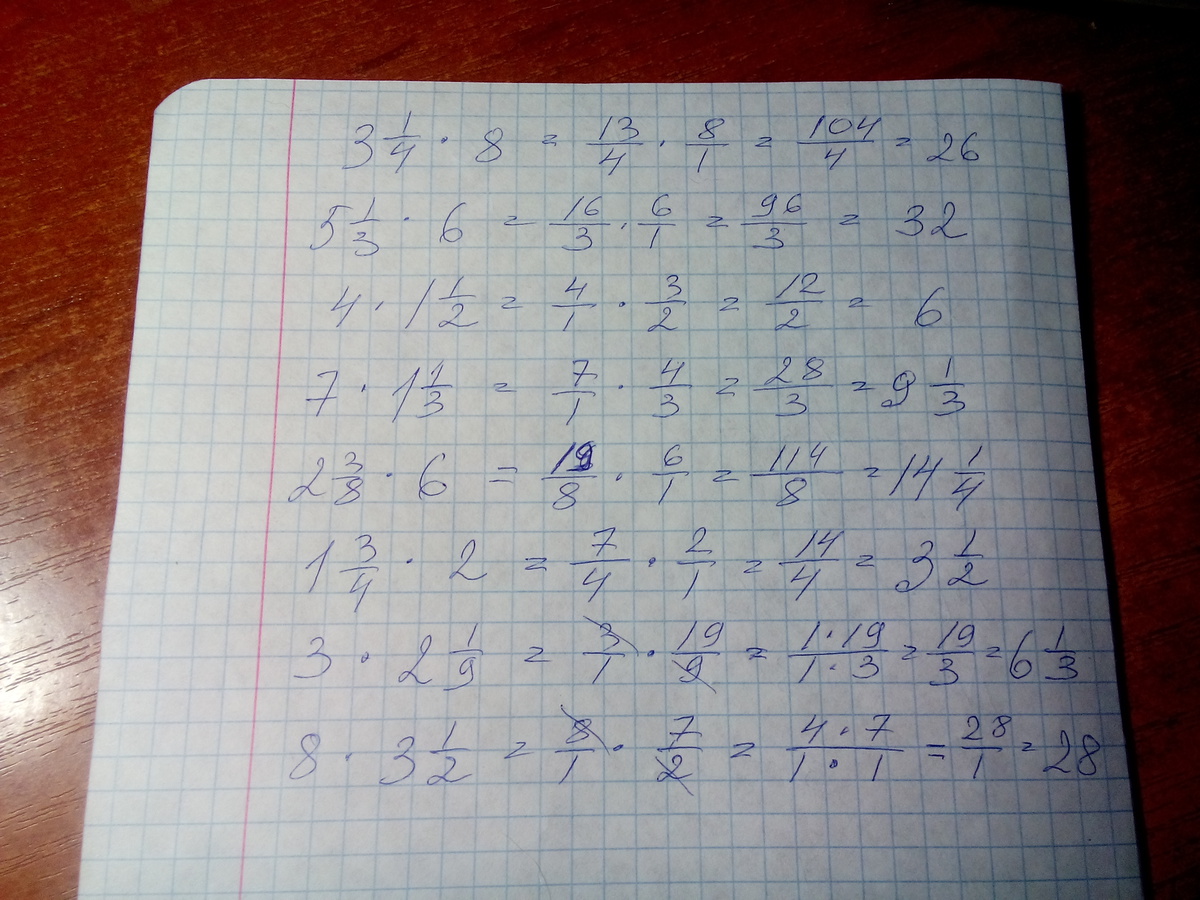 3 1/4 · 8 = 13/4 · 8/1 = 104/4 = 26
5 1/3 · 6 = 16/3 · 6/1 = 96/3 = 32
4 · 1 1/2 = 4/1 · 3/2 = 12/2 = 6
7 · 1 1/3 = 7/1 · 4/3 = 28/3 = 9 1/3
2 3/8 · 6 = 19/8 · 6/1 = 114/8 = 14 1/4
1 3/4 · 2 = 7/4 · 2/1 = 14/4 = 3 1/2
3 · 2 1/9 = 3/1 · 19/9 = 1·19/1·3 = 19/3 = 6 1/3
8 · 3 1/2 = 8/1 · 7/2 = 4·7/1·1 = 28/1 = 28